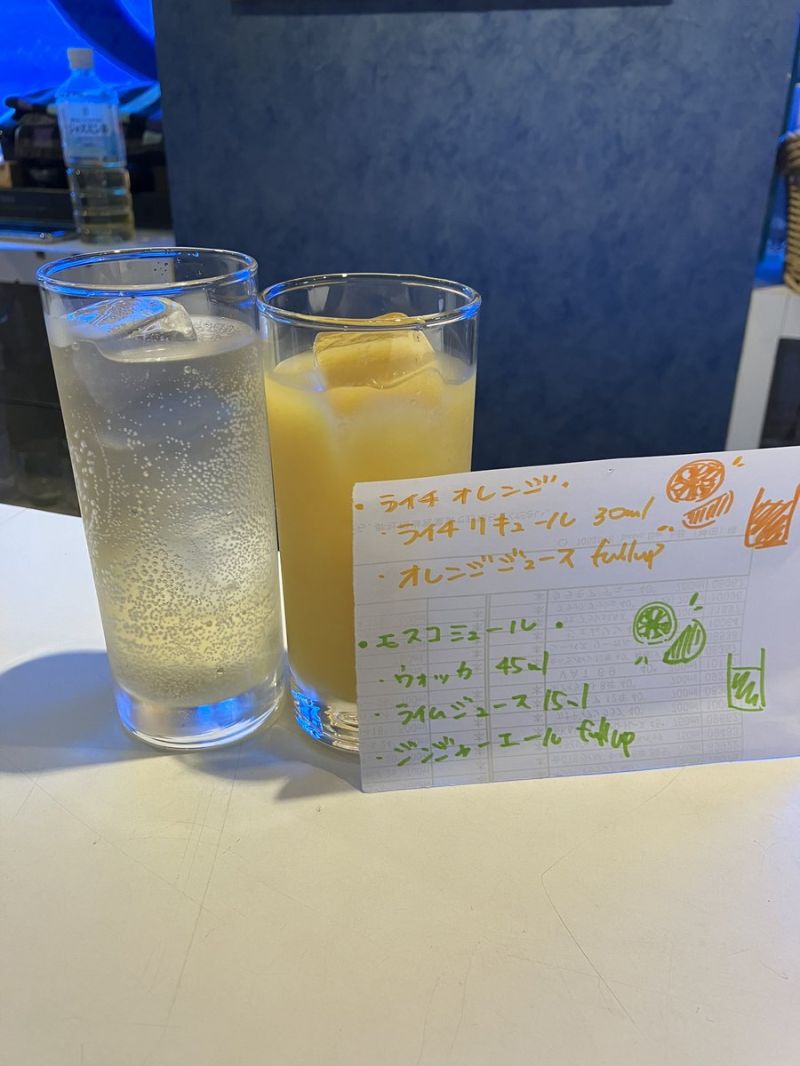 ジャスミン茶
・ライチ オレンジ・
・ライチ リキュール 30ml
・オレンジジュース fullup
・モスコミュール・
・ウォッカ 45ml
・ライムジュース 15ml
・ジンジャーエール fullup